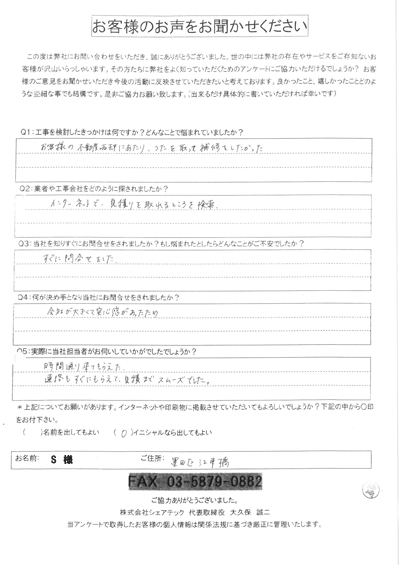 お客様のお声をお聞かせください
この度は弊社にお問い合わせをいただき、誠にありがとうございました。世の中には弊社の存在やサービスをご存知ないお
客様が沢山いらっしゃいます。その方たちに弊社をよく知っていただくためのアンケートにご協力いただけるでしょうか? お客
様のご意見をお聞かせいただき今後の活動に反映させていただきたいと考えております。良かったこと、嬉しかったことどのよ
うな些細な事でも結構です。是非ご協力お願い致します。(出来るだけ具体的に書いていただければ幸いです)
Q1:工事を検討したきっかけは何ですか?どんなことで悩まれていましたか?
お客様の不動産売却にあたり、
を取って補修をしたかった
Q2:業者や工事会社をどのように探されましたか?
インターネットで、見積りを取れるところを検索。
Q3:当社を知りすぐにお問合せをされましたか?もし悩まれたとしたらどんなことがご不安でしたか?
すぐに問合せました。
Q4:何が決め手となり当社にお問合せをされましたか?
会社が大きくて安心感があったため
Q5:実際に当社担当者がお伺いしていかがでしたでしょうか?
時間通り来てもらえた。
連絡もすぐにもらえて、見積までスムーズでした。
*上記についてお願いがあります。インターネットや印刷物に掲載させていただいてもよろしいでしょうか?下記の中から○印
をお付け下さい。
( )名前を出してもよい (○)イニシャルなら出してもよい
お名前: S 様 ご住所: 墨田区江東橋
FAX 03-5879-0882
ご協力ありがとうございました。
株式会社シェアテック 代表取締役 大久保 誠二
当アンケートで取得したお客様の個人情報は関係法規に基づき厳正に管理いたします。